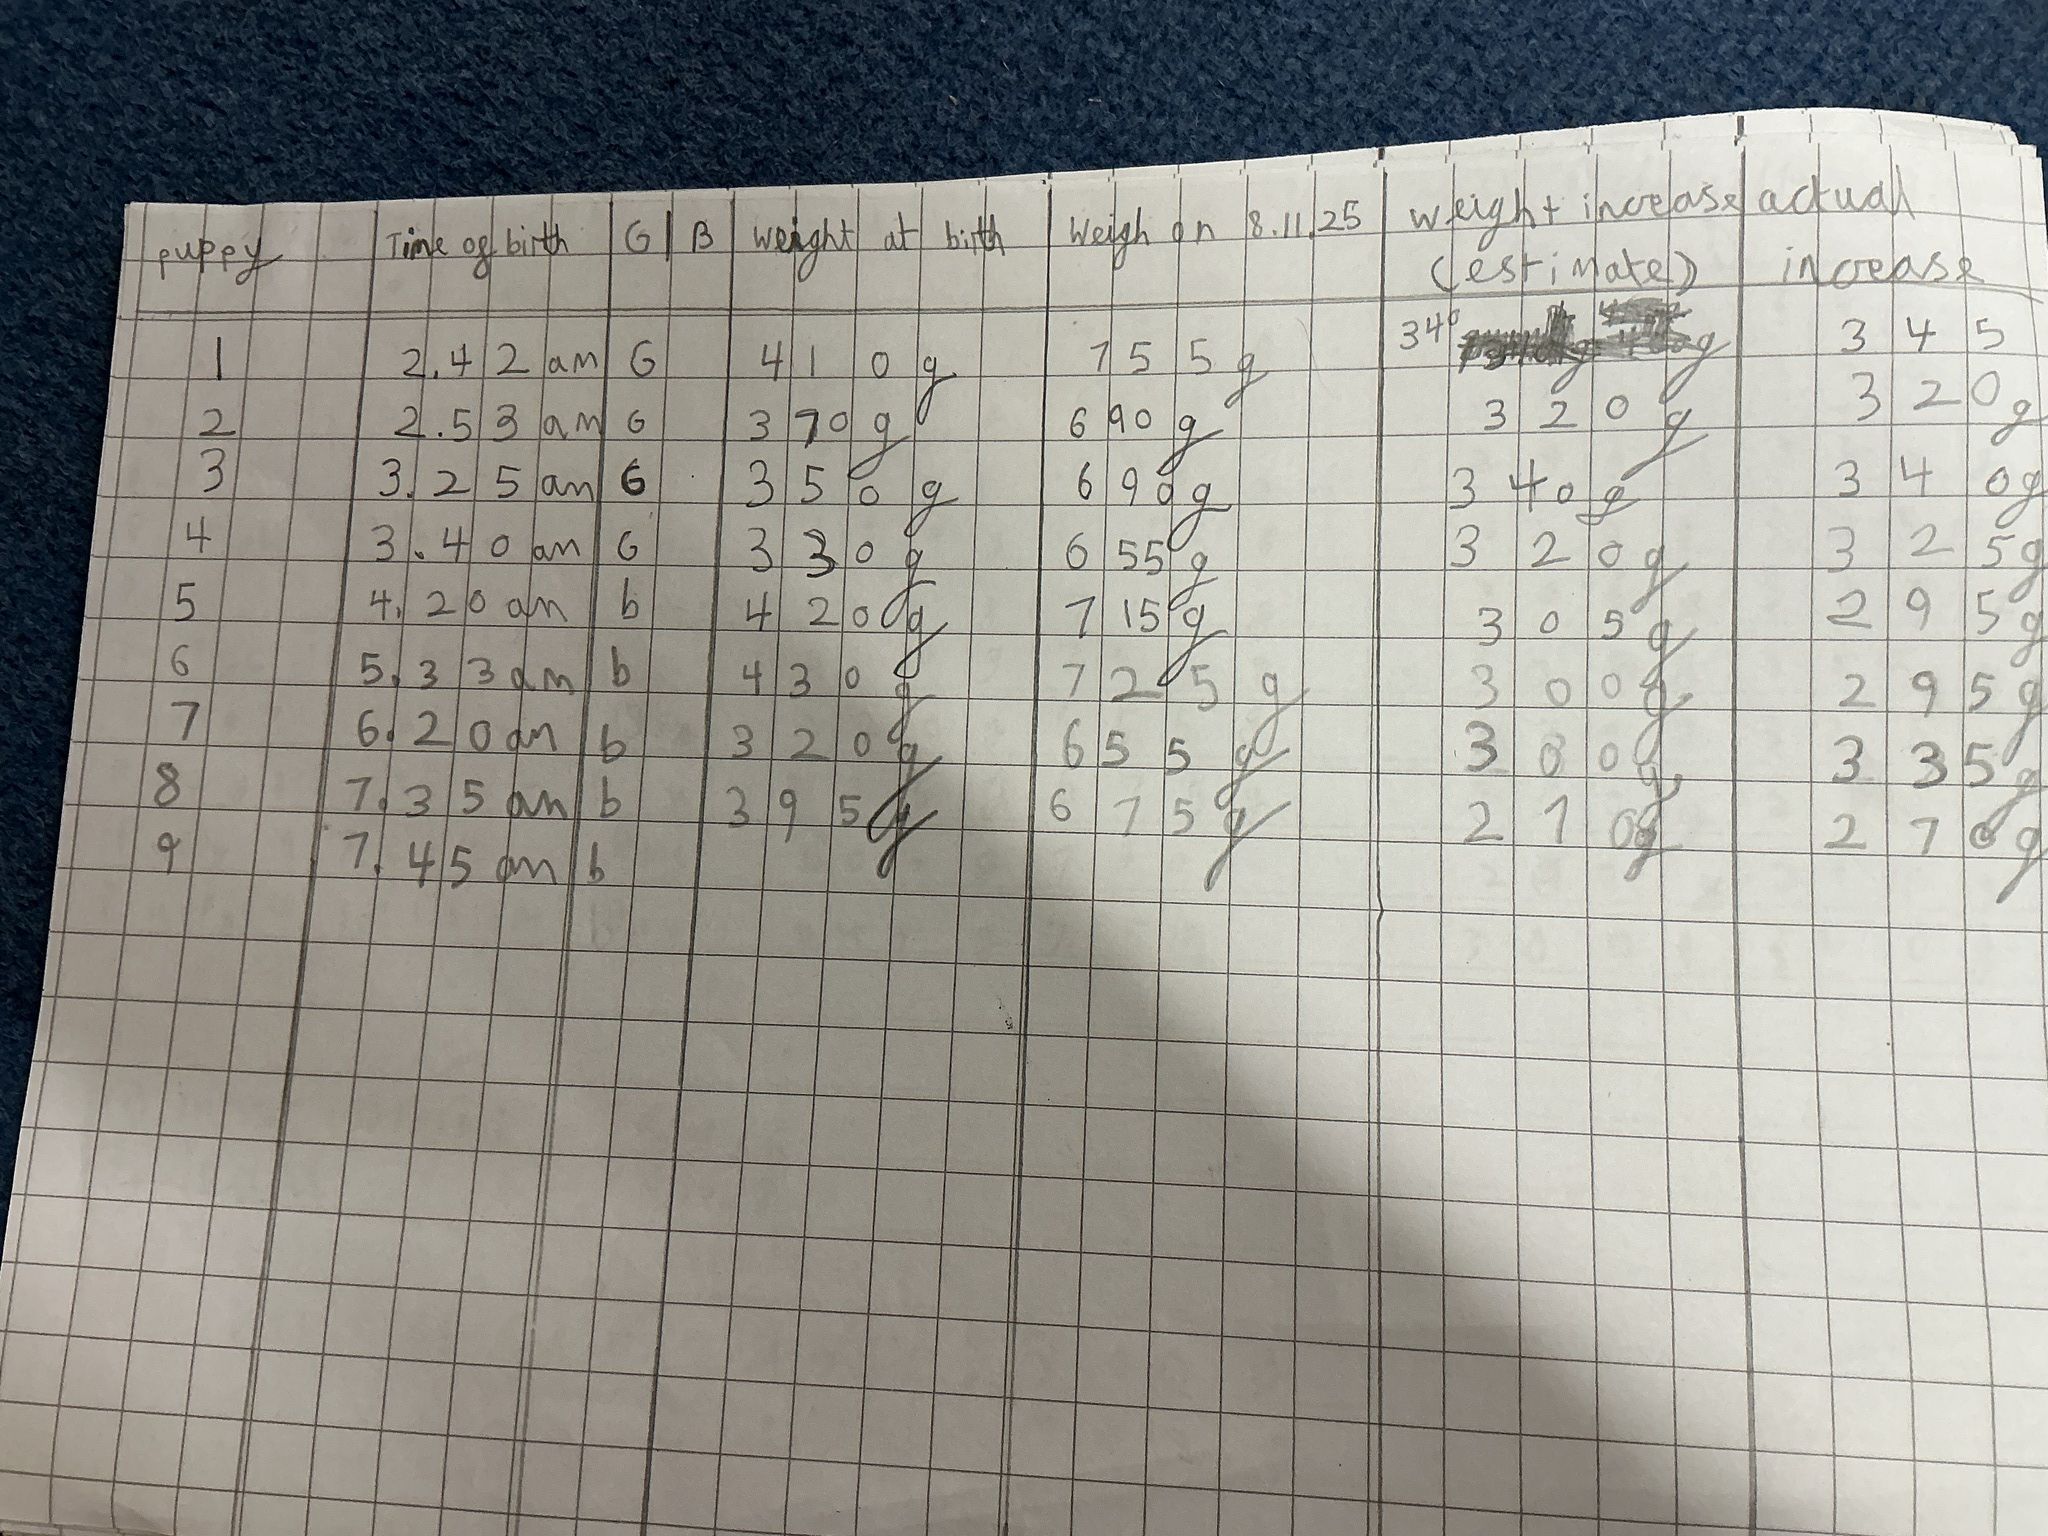 puppy Time of birth G B weight at birth weigh on 8.11.25 weight increase (estimate) actual increase
1 2.42 am G 410g 755g 340 g 345
2 2.53 am G 370g 690g 320g 320g
3 3.25 am G 350g 690g 340g 340g
4 3.40 am G 330g 655g 320g 325g
5 4.20 am b 420g 715g 305g 295g
6 5.33 am b 430g 725g 300g 295g
7 6.20 am b 320g 655g 300g 335g
8 7.35 am b 395g 675g 270g 270g
9 7.45 am b